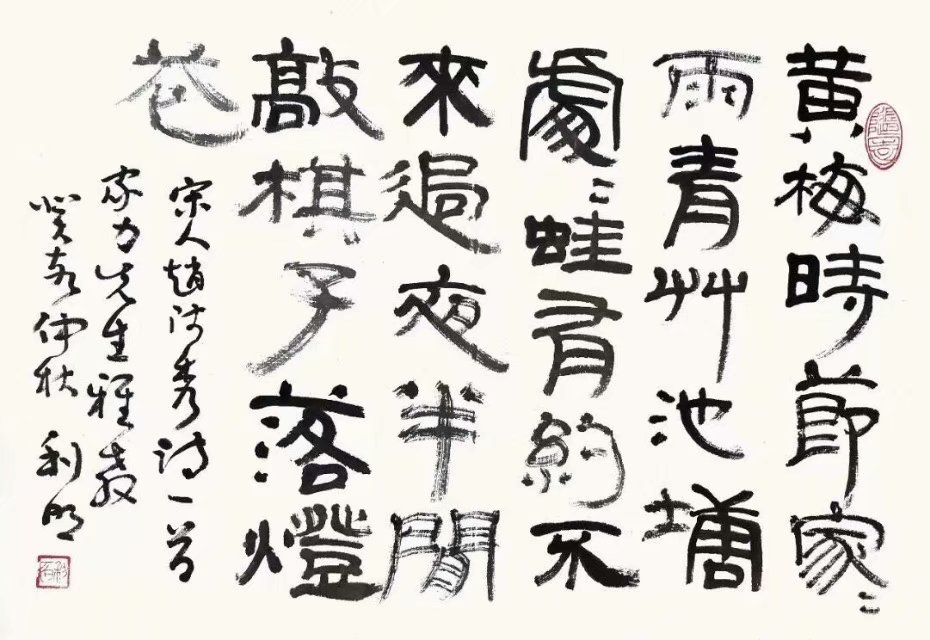 黄梅時節家〻
雨青艸池塘
處〻蛙有約不
來過夜半閒
敲棋子落燈
花
宋人趙師秀詩一首
家力先生雅教
癸卯仲秋 利明